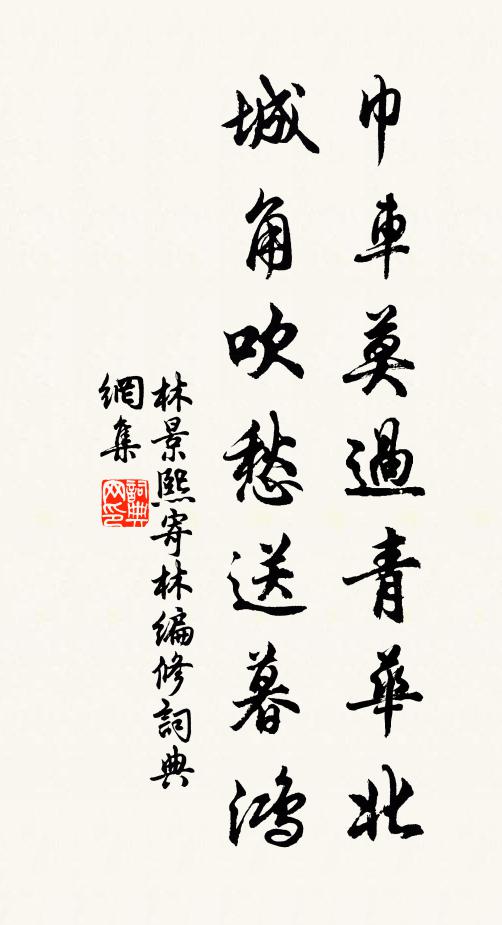 巾車莫過青華北
城角吹愁送暮鴻
林景熙寄林編修詞典
網集
詞典
网印